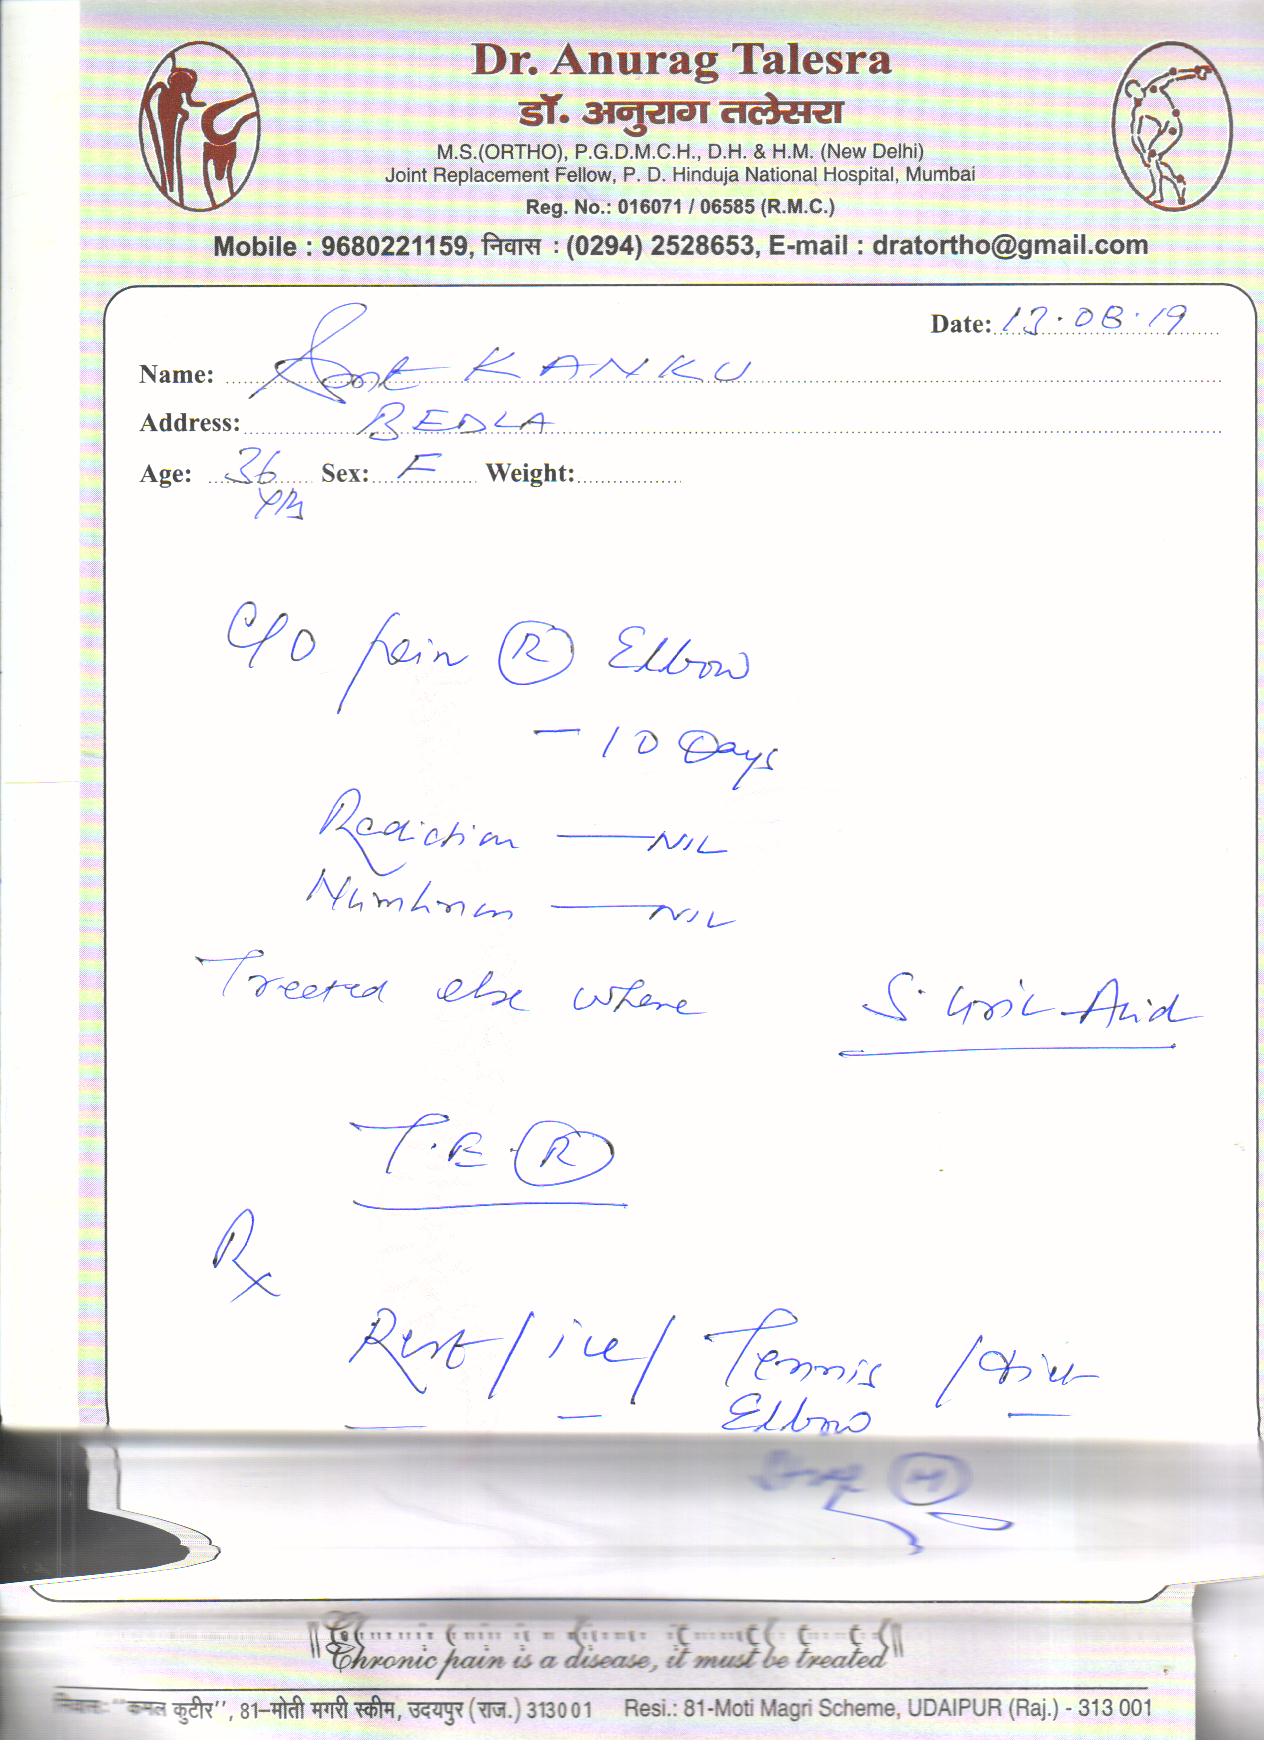 Dr. Anurag Talesra
डॉ. अनुराग तलेसरा
M.S.(ORTHO), P.G.D.M.C.H., D.H. & H.M. (New Delhi)
Joint Replacement Fellow, P. D. Hinduja National Hospital, Mumbai
Reg. No.: 016071 / 06585 (R.M.C.)
Mobile : 9680221159, निवास : (0294) 2528653, E-mail : dratortho@gmail.com
Date: 13.08.19
Name: Smt KANKU
Address: BEDLA
Age: 36 Sex: F Weight:
yrs
C/O pain (R) Elbow
- 10 Days
Radiation — NIL
Numbness — NIL
Treated else where
S. Uric Acid
T.E. (R)
Rx
Rest / ice / Tennis / diet
Elbow
"Chronic pain is a disease, it must be treated"
निवास: "कमल कुटीर", 81-मोती मगरी स्कीम, उदयपुर (राज.) 313001 Resi.: 81-Moti Magri Scheme, UDAIPUR (Raj.) - 313 001